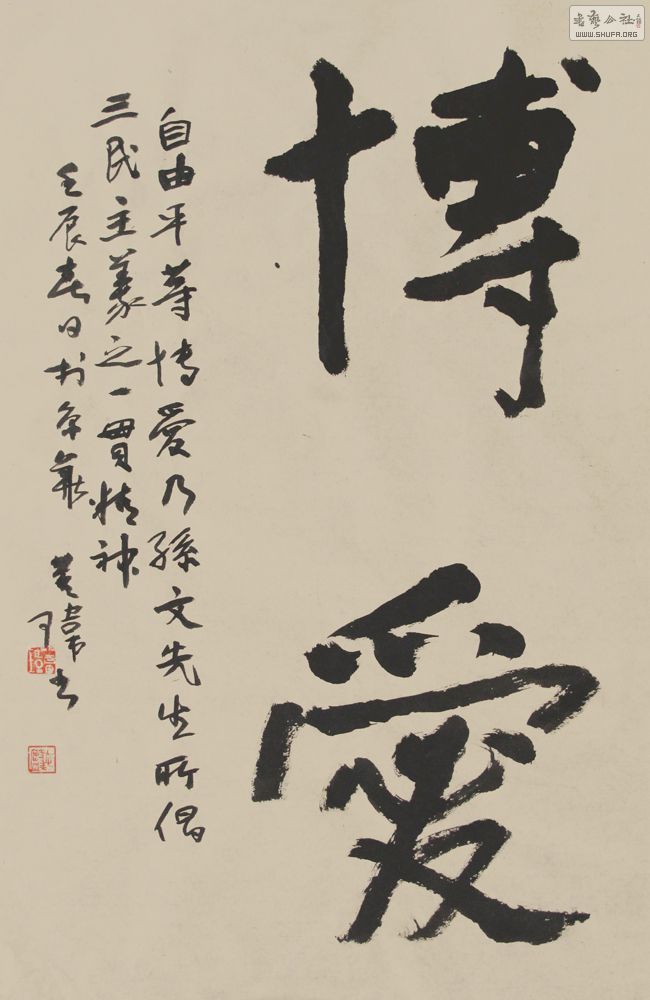 書藝公社
WWW.SHUFA.ORG
博愛
自由平等博愛乃孫文先生所倡
三民主義之一貫精神
壬辰春日於京華
瑋书